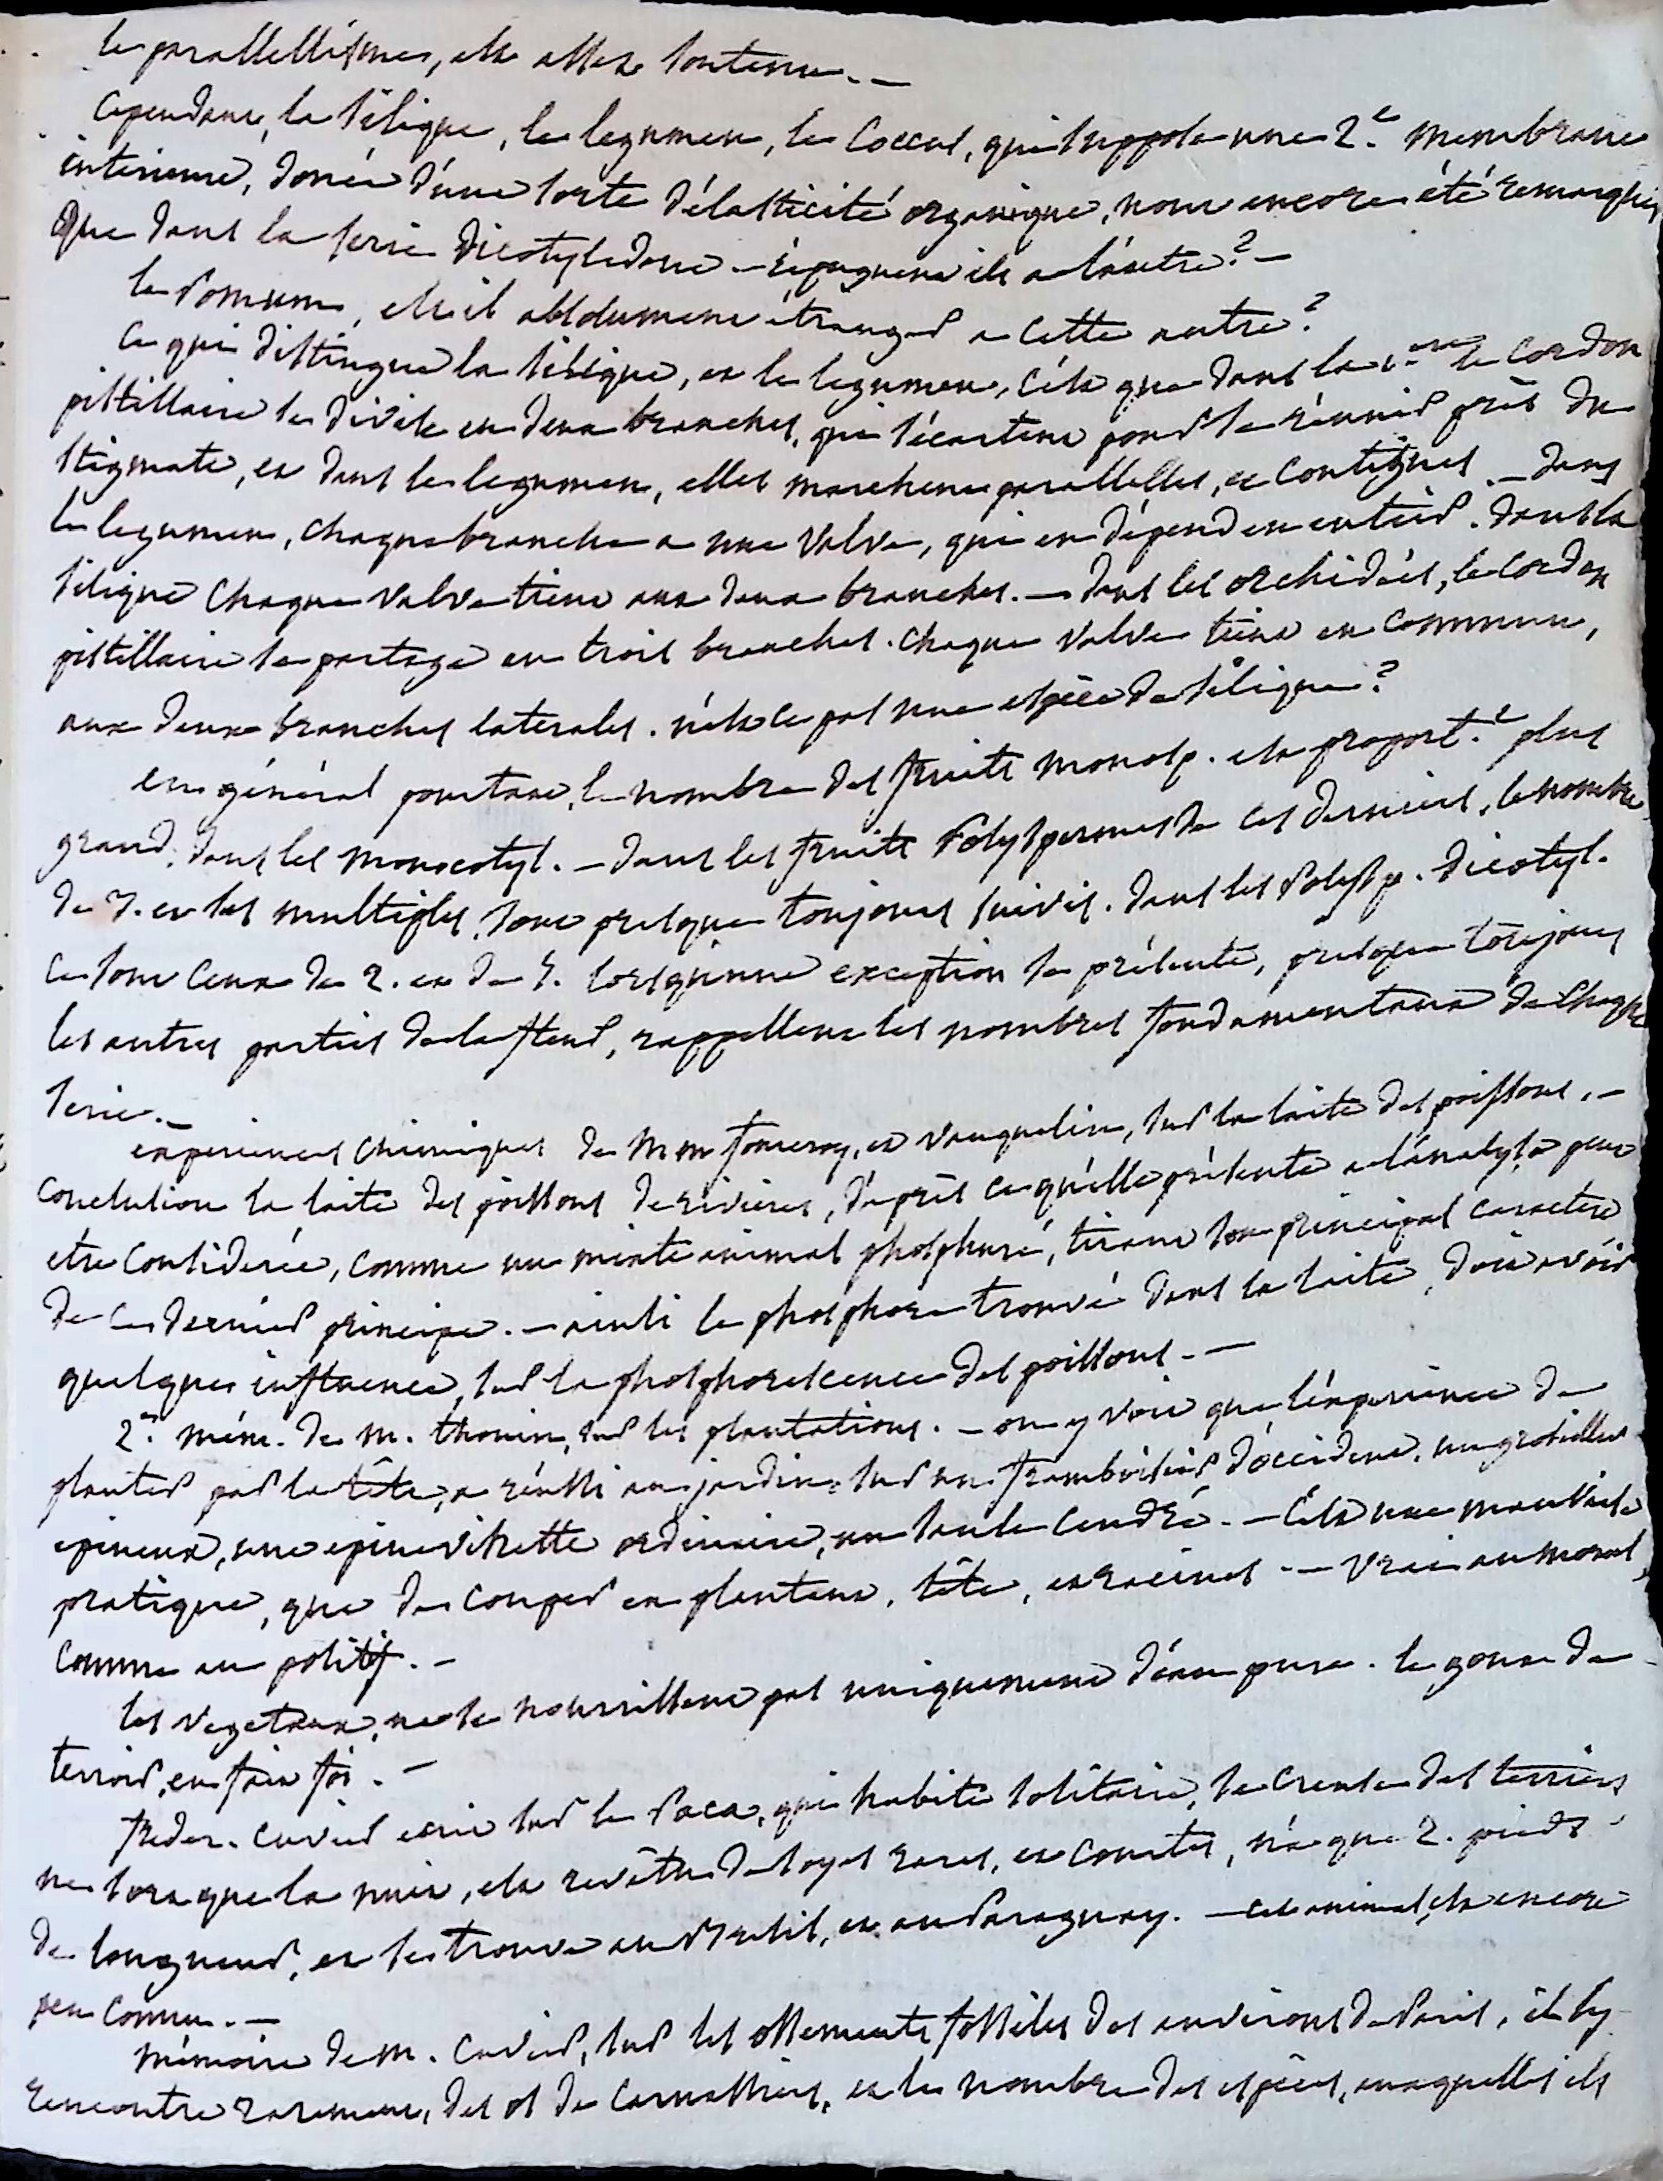 le parallellisme, est assez soutenu. —
Cependant, la silique, le legumen, le Coccus, qui suppose une 2e. membrane
interieure, donée d'une sorte d'élasticité organique, n'ont encore été remarqués
que dans la serie dicotyledone – répugnent ils a l'autre? –
le Pomum, est il absolument étranger a cette autre?
Ce qui distingue la silique, et le legumen, c'est que dans la 1.ere le cordon
pistillaire se divise en deux branches, qui s'écartent pour se réunir près du
stigmate, et dans le legumen, elles marchent parallelles, et contigues. – dans
le legumen, chaque branche a une valve, qui en dépend en entier. dans la
silique chaque valve tient aux deux branches. – dans les orchidées, le cordon
pistillaire se partage en trois branches. chaque valve tient en commun,
aux deux branches laterales. n'est ce pas une espèce de silique?
en général pourtant, le nombre des fruits monosp. est proport.t plus
grand, dans les monocotyl. – dans les fruits Polyspermes de ces derniers, le nombre
de 3. et ses multiples, sont presque toujours suivis. dans les Polysp. dicotyl.
ce sont ceux de 2. et de 5. lorsqu'une exception se présente, presque toujours
les autres parties de la fleur, rappellent les nombres fondamentaux de chaque
serie. –
experiences chimiques de Mrs fourcroy, et vauquelin, sur la laite des poissons. –
Conclusion la laite des poissons de rivieres, d'après ce qu'elle présente a l'analyse peut
etre considerée, comme un mixte animal phosphuré, tirant son principal caractere
de ce dernier principe. – ainsi le phosphore trouvé dans la laite, doit avoir
quelques influence, sur la phosphorescence des poissons. –
2e. mém. de M. thouin, sur les plantations. – on y voit que l'experience de
planter par la tête, a réussi au jardin, sur un framboisier d'occident, un groseiller
epineux, une epinevinette ordinaire, un saule cendré. – C'est une mauvaise
pratique, que de couper en plantant, tête, et racines – vrai au moral,
comme au positif. –
les vegetaux, ne se nourrissent pas uniquement d'eau pure. le goux de
terroir, en fait foi. –
freder. cuvier ecrit sur le Paca, qui habite solitaire, se creuse des terriers
ne sort que la nuit, est revêtu de soyes rares, et courtes, n'a que 2. pieds
de longueur, et se trouve au Bresil, et au Paraguay. – cet animal, est encore
peu connu. –
Mémoire de M. Cuvier, sur les ossements fossiles des environs de Paris, il s'y
rencontre rarement, des os de carnassiers, et le nombre des espèces, auxquelles ils